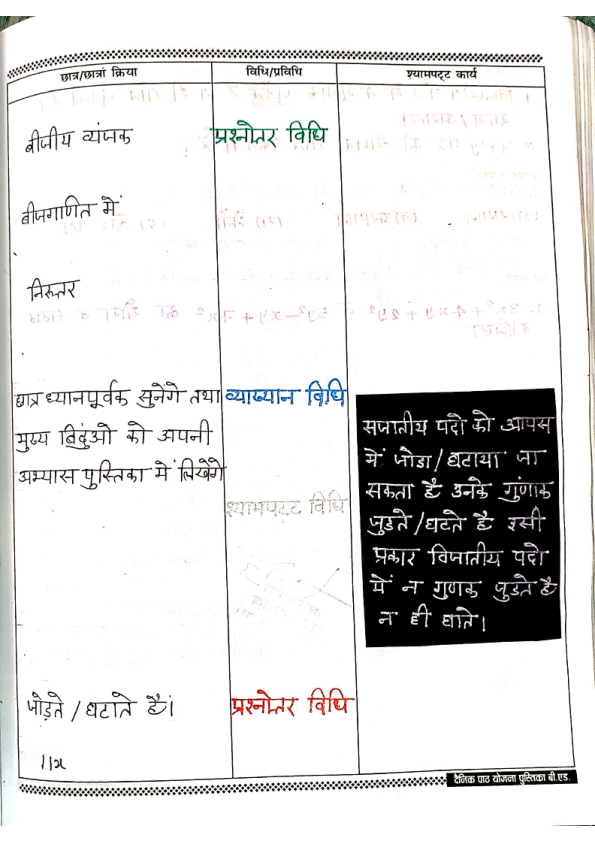 छात्र/छात्रां क्रिया
विधि/प्रविधि
श्यामपट्ट कार्य
बीजीय व्यंजक
प्रश्नोतर विधि
बीजगाणित में
निरुत्तर
छात्र ध्यानपूर्वक सुनेगे तथा
व्याख्यान विधि
मुख्य बिदुंओ को अपनी
अभ्यास पुस्तिका में लिखेंगे
श्यामपट्ट विधि
सजातीय पदो को आपस
में जोडा/घटाया जा
सकता है उनके गुंणाक
जुडते/घटते है इसी
प्रकार विजातीय पदो
में न गुणक जुडते है
न ही घाते।
जोड़ते/घटाते हैं।
प्रश्नोतर विधि
11x
दैनिक पाठ योजना पुस्तिका बी.एड.